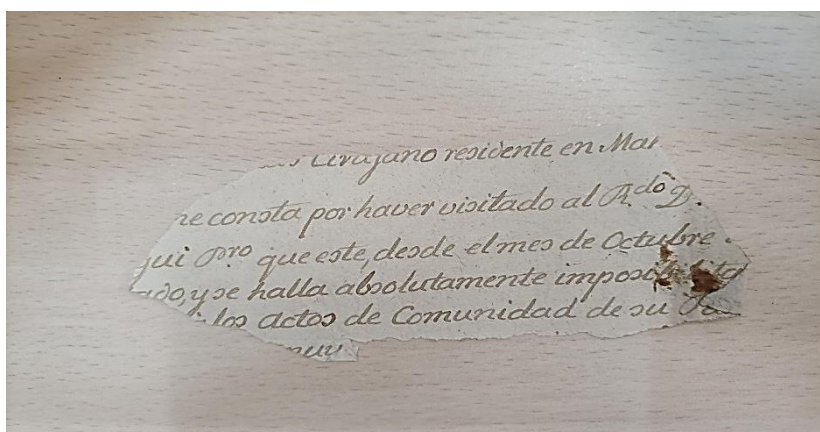 Cirujano residente en Mar
me consta por haver visitado al R.do D.
qui Pbro que este, desde el mes de Octubre
ado, y se halla absolutamente imposibilita
los actos de Comunidad de su
muy